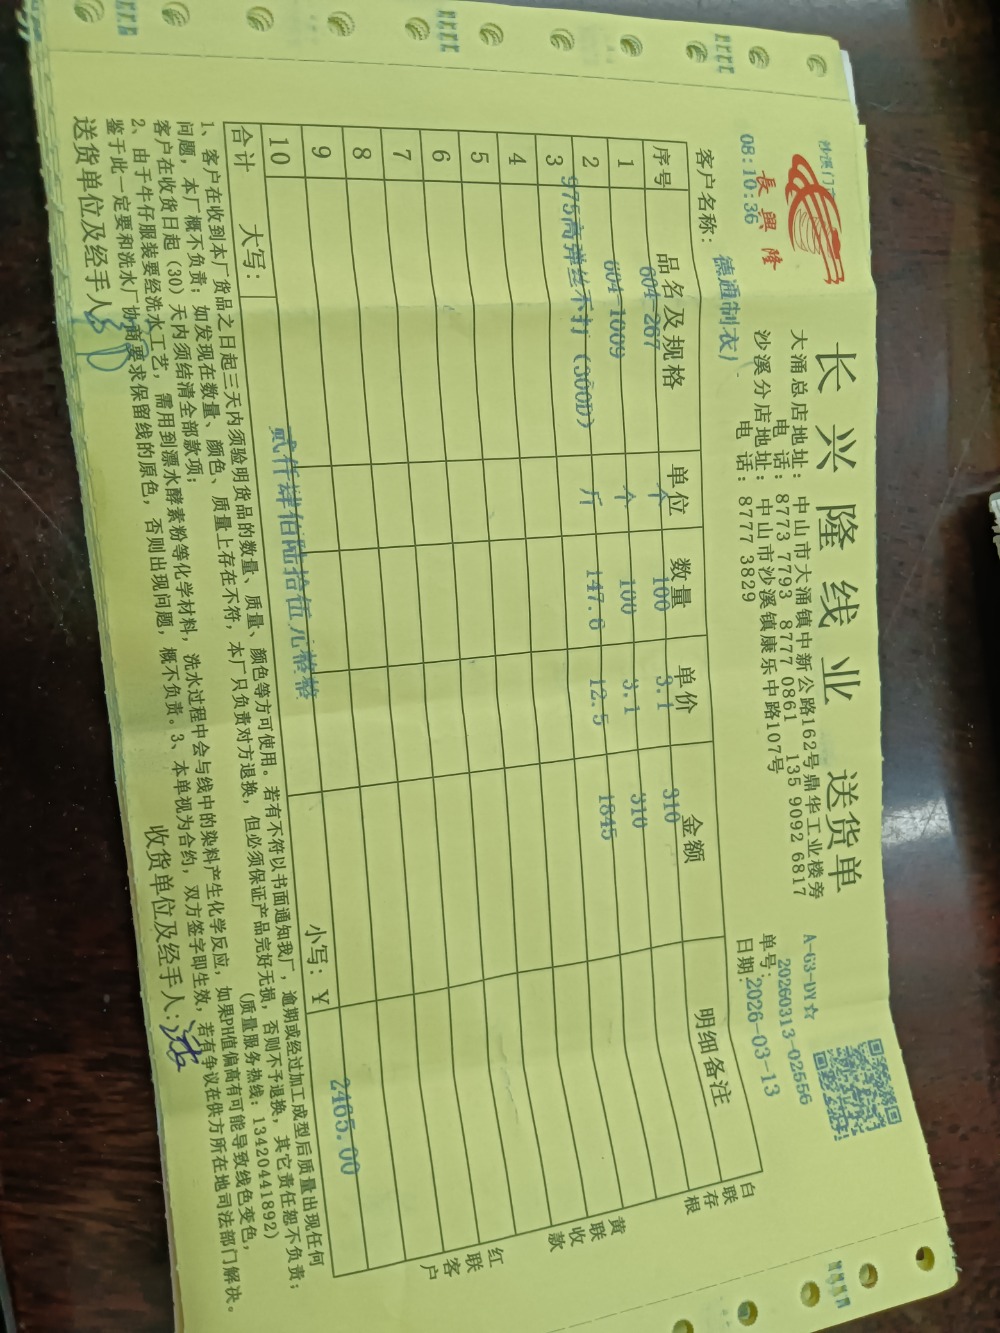 長興隆
08:10:36
长兴隆线业 送货单
大涌总店地址: 中山市大涌镇中新公路162号鼎华工业楼旁
电 话: 8773 7793 8777 0861 135 9092 6817
沙溪分店地址: 中山市沙溪镇康乐中路107号
电 话: 8777 3829
A-63-DY☆
单号: 20260313-02556
日期: 2026-03-13
客户名称: 德通制衣厂
序号 品名及规格 单位 数量 单价 金额 明细备注
604-267 个 100 3.1 310
1 604-1009 个 100 3.1 310
2 975高弹丝不打(300D) 斤 147.6 12.5 1845
3
4
5
6
7
8
9
10
合计 大写: 贰仟肆佰陆拾伍元整整 小写: Y 2465.00
白联存根
黄联收款
红联客户
1、客户在收到本厂货品之日起三天内须验明货品的数量、质量、颜色等方可使用。若有不符以书面通知我厂,逾期或经过加工成型后质量出现任何
问题,本厂概不负责;如发现在数量、颜色、质量上存在不符,本厂只负责对方退换,但必须保证产品完好无损,否则不予退换,其它责任恕不负责;
客户在收货日起(30)天内须结清全部款项; (质量服务热线:13420441892)
2、由于牛仔服装要经洗水工艺,需用到漂水酵素粉等化学材料,洗水过程中会与线中的染料产生化学反应,如果PH值偏高有可能导致线色变色,
鉴于此一定要和洗水厂协商要求保留线的原色,否则出现问题,概不负责。3、本单视为合约,双方签字即生效,若有争议在供方所在地司法部门解决。
送货单位及经手人: 收货单位及经手人: